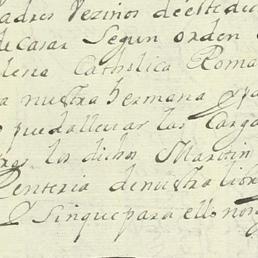 padres Vezinos de este di
de casar Segun orden
lena Catholica Roma
a nuestra hermana y pa
puedalleuar las Carga
los dichos Martin
Renteria de nuestra libre
y Sinque para ello nos